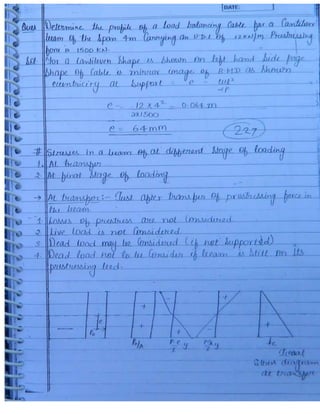 DATE:
Ques Determine the profile of a load balancing cable for a cantilever
beam of the span 4m carrying an U.D.L of 12 kN/m Prestressing
force is 1500 KN.
Sol For a cantilever shape is shown on left hand side page
Shape of cable is mirror image of B.M.D as shown
eccentricity at support = e = wl²/2P
e = 12 x 4² / 2x1500 = 0.064 m
e = 64mm
(227)
# Stresses in a beam at different stage of loading
1. At transfer
2. At final stage of loading
→ At transfer:- Just after transfer of prestressing force in
the beam
1. Losses of prestress are not considered.
2. Live load is not considered
3. Dead load may be considered (if not supported)
4. Dead load not to be consider if beam is still on its
prestressing bed.
+ + - + - + +
e
P₀ P₀/A y y fc
Stress diagram
at transfer